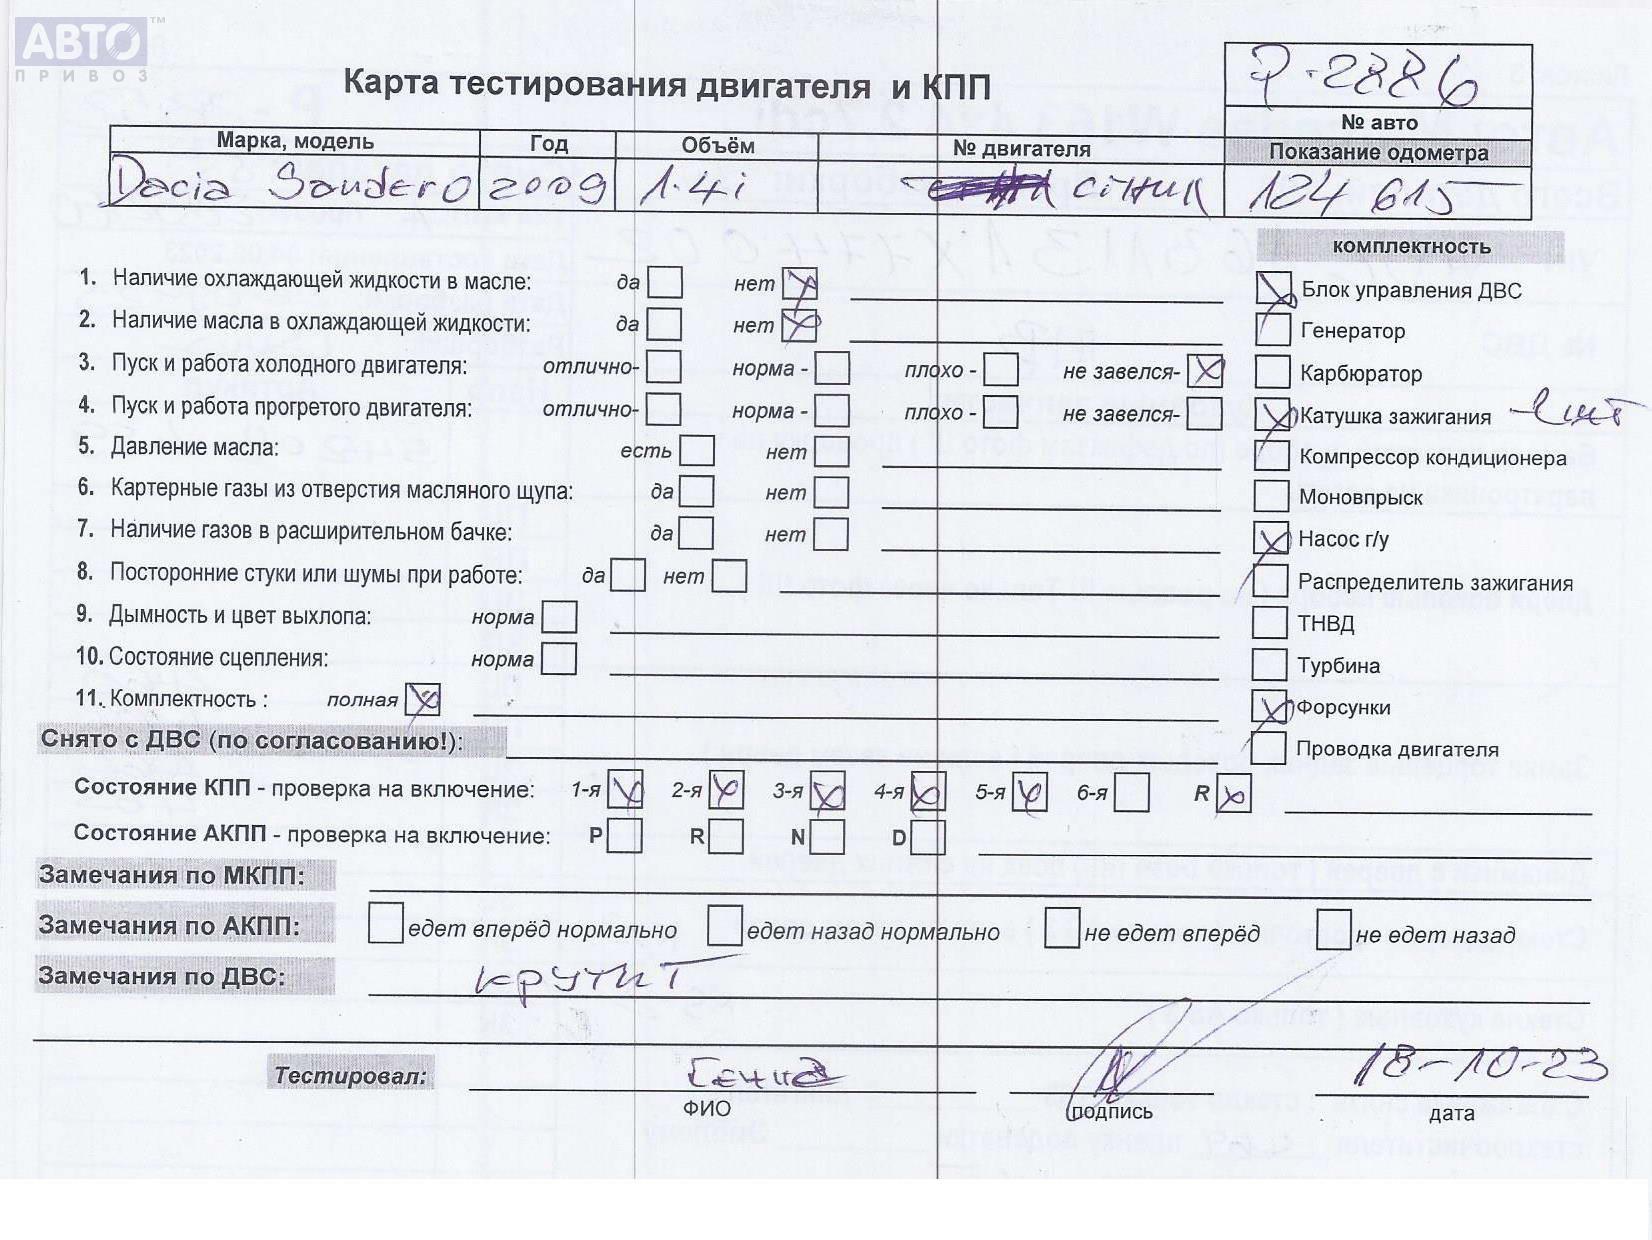 АВТО™
ПРИВОЗ
Карта тестирования двигателя и КПП
P-2886
№ авто
Марка, модель Год Объём № двигателя Показание одометра
Dacia Sandero 2009 1.4i 124 615
комплектность
1. Наличие охлаждающей жидкости в масле: да нет Блок управления ДВС
2. Наличие масла в охлаждающей жидкости: да нет Генератор
3. Пуск и работа холодного двигателя: отлично- норма - плохо - не завелся- Карбюратор
4. Пуск и работа прогретого двигателя: отлично- норма - плохо - не завелся- Катушка зажигания - 1 шт
5. Давление масла: есть нет Компрессор кондиционера
6. Картерные газы из отверстия масляного щупа: да нет Моновпрыск
7. Наличие газов в расширительном бачке: да нет Насос г/у
8. Посторонние стуки или шумы при работе: да нет Распределитель зажигания
9. Дымность и цвет выхлопа: норма ТНВД
10. Состояние сцепления: норма Турбина
11. Комплектность : полная Форсунки
Снято с ДВС (по согласованию!): Проводка двигателя
Состояние КПП - проверка на включение: 1-я 2-я 3-я 4-я 5-я 6-я R
Состояние АКПП - проверка на включение: P R N D
Замечания по МКПП:
Замечания по АКПП: едет вперёд нормально едет назад нормально не едет вперёд не едет назад
Замечания по ДВС: крутит
Тестировал: Гена 18-10-23
ФИО подпись дата